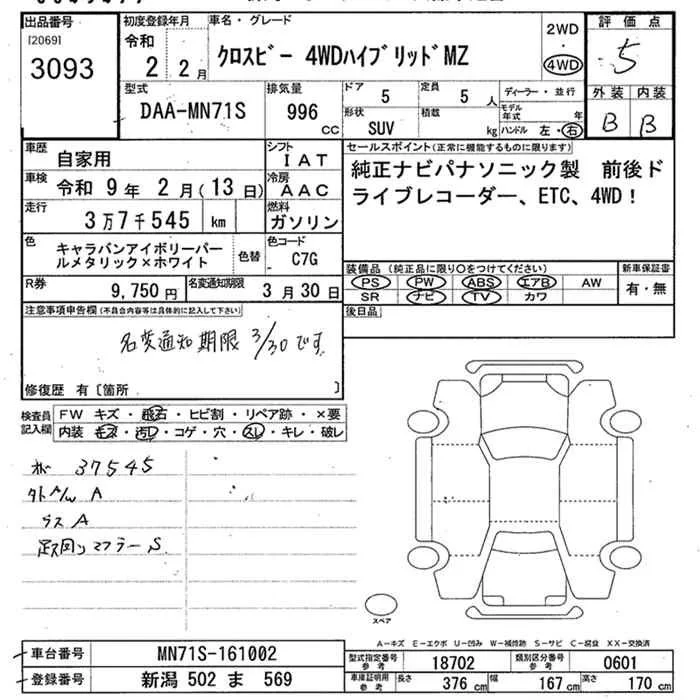 出品番号
[2069]
3093
初度登録年月
令和
2 2月
車名・グレード
クロスビー 4WDハイブリッドMZ
2WD
・
4WD
評価点
5
外装 内装
B B
型式
DAA-MN71S
排気量
996
cc
ドア
5
定員
5 人
形状
SUV
積載
kg
ディーラー・並行
モデル年式 年
ハンドル 左・右
車歴
自家用
シフト
IAT
車検
令和 9年 2月(13日)
冷房
AAC
走行
3万7千545 km
燃料
ガソリン
色
キャラバンアイボリーパー
ルメタリック×ホワイト
色替
色コード
C7G
R券
9,750円
名変通知期限
3月30日
セールスポイント(正常に機能するものに限ります)
純正ナビパナソニック製 前後ド
ライブレコーダー、ETC、4WD!
装備品(純正品に限り〇をつけてください)
PS PW ABS エアB AW
SR ナビ TV カワ
新車保証書
有・無
後日品
注意事項申告欄(不具合内容等は具体的に記入して下さい)
名変通知期限 3/30です
修復歴 有〔箇所 〕
検査員
記入欄
FW キズ・飛石・ヒビ割・リペア跡・×要
内装 キズ・汚レ・コゲ・穴・スレ・キレ・破レ
37545
A
A
足廻りマフラーS
スペア
A-キズ E-エクボ U-凹み W-補修跡 S-サビ C-腐食 XX-交換済
車台番号
MN71S-161002
登録番号
新潟 502 ま 569
型式指定番号
参考
18702
類別区分番号
参考
0601
車検証明用
参考
長さ
376 cm
幅
167 cm
高さ
170 cm